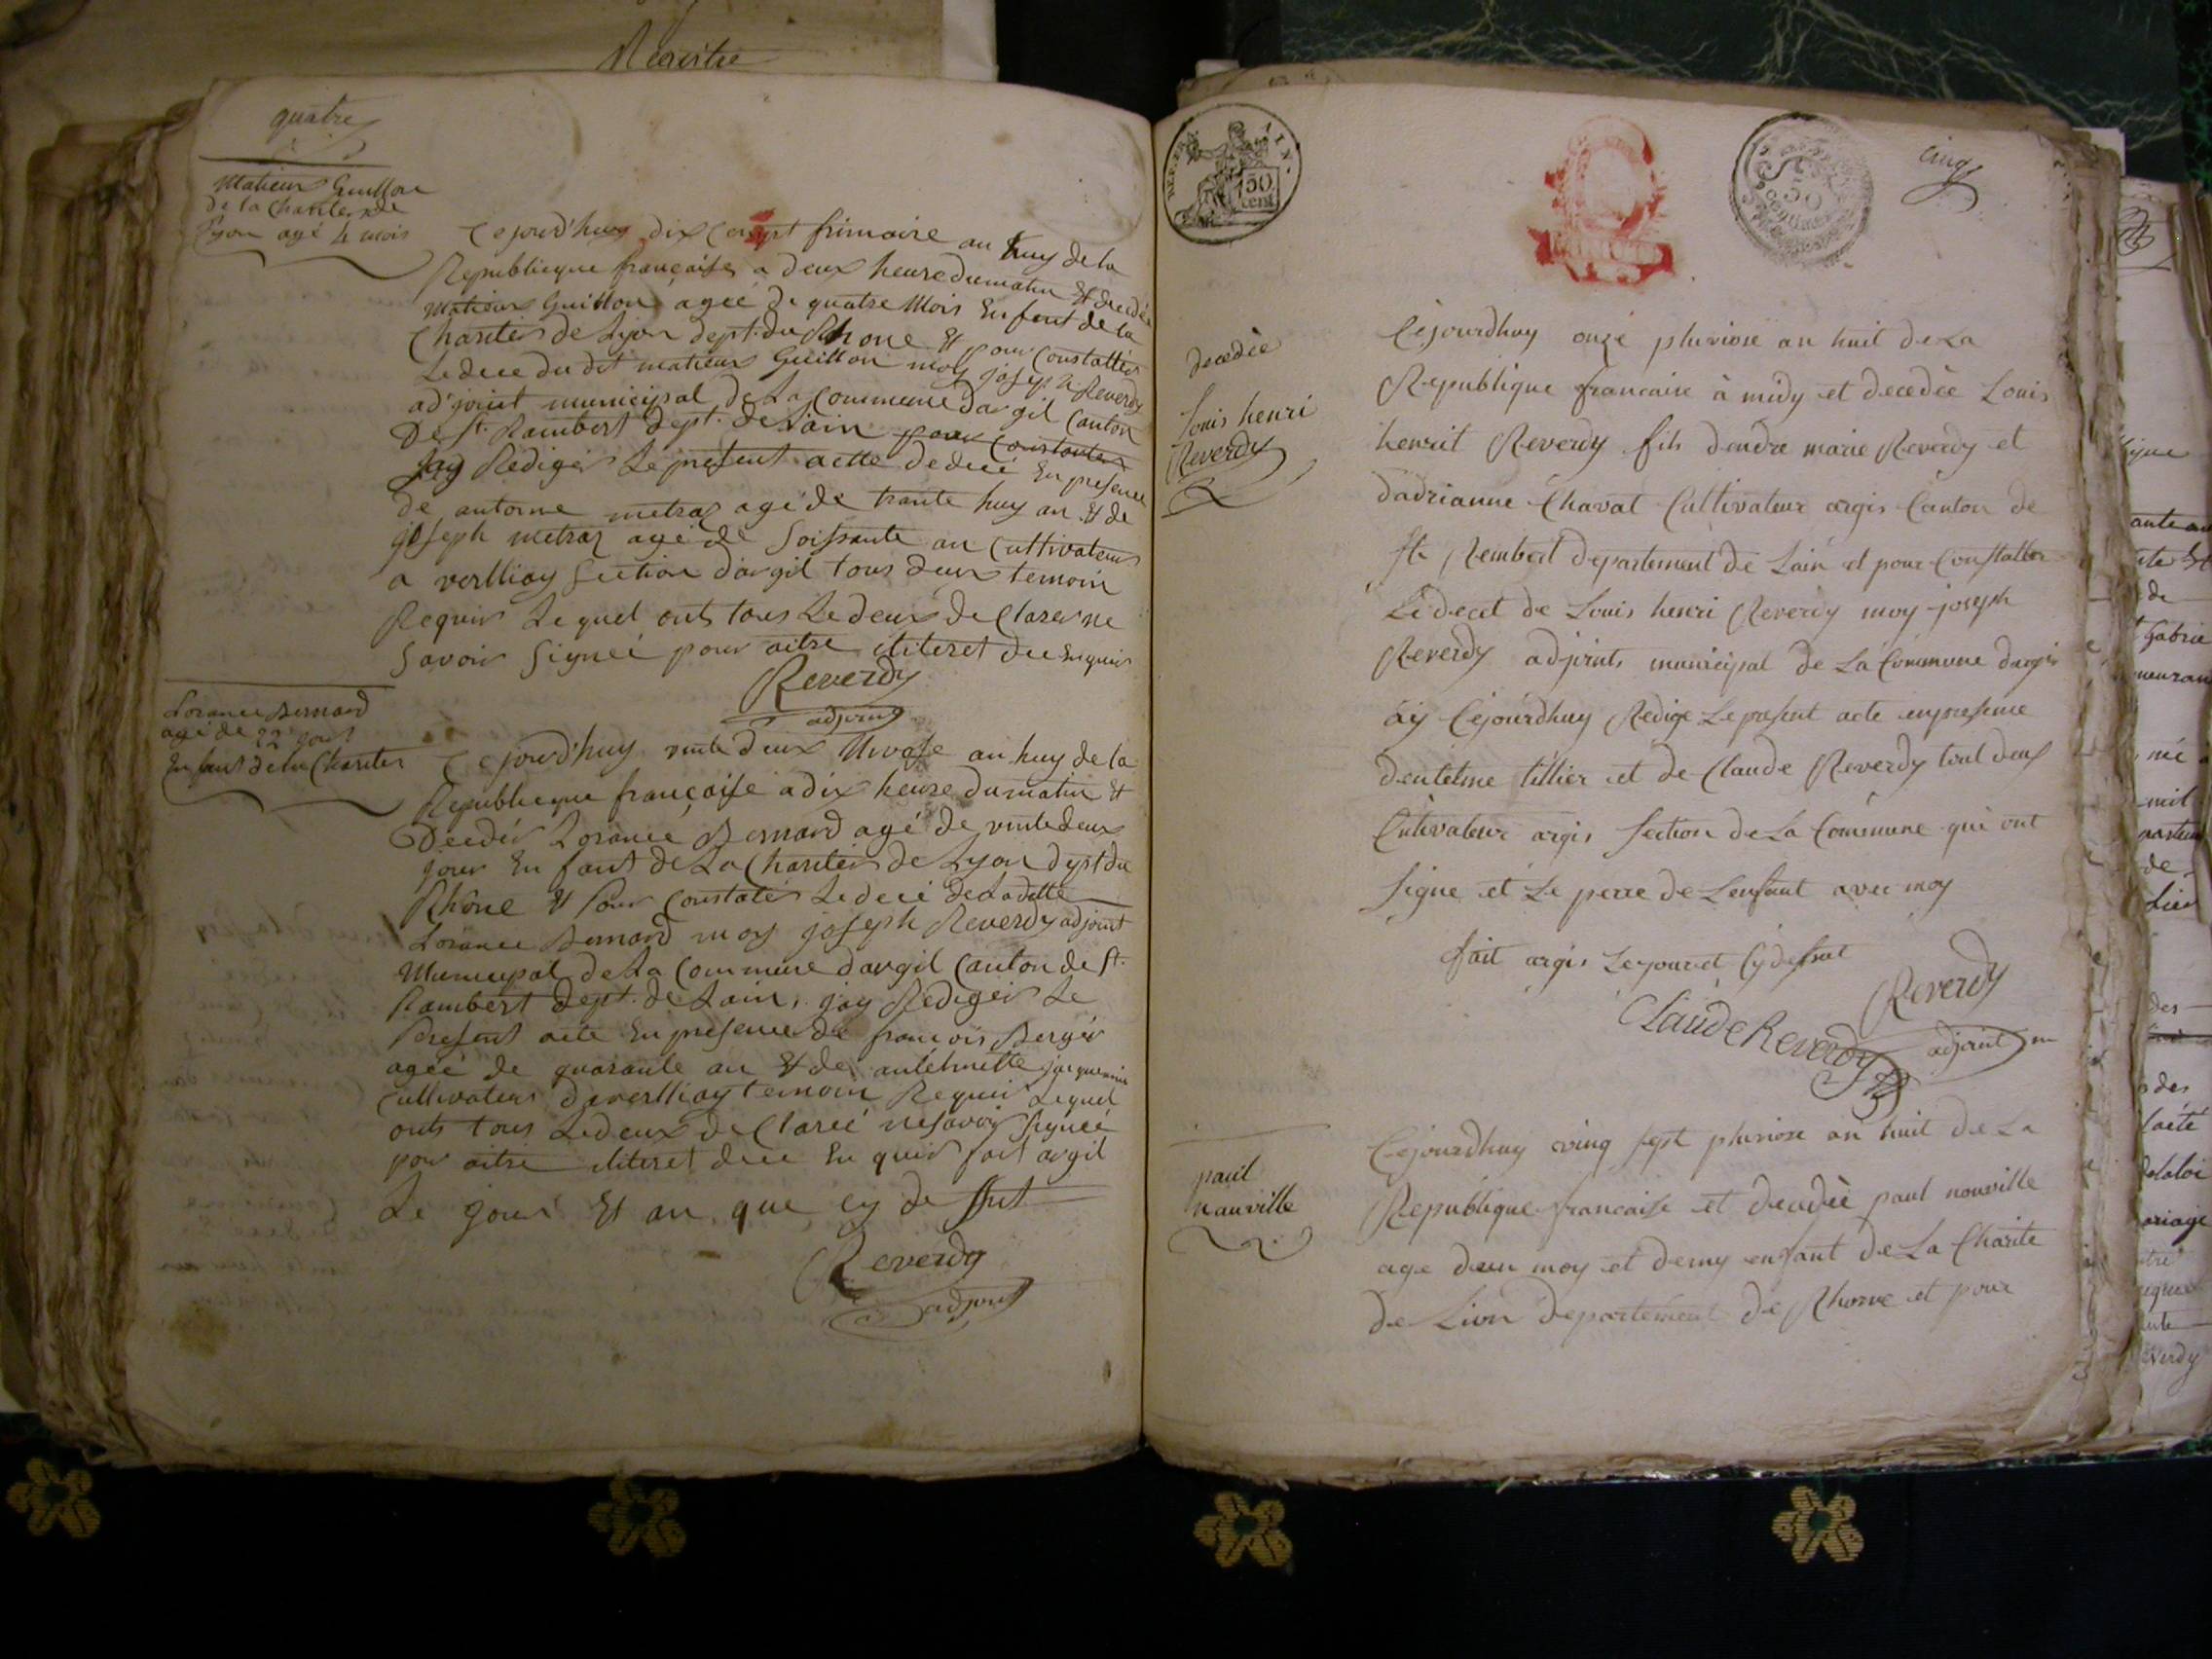 Registre
quatre
Matieux Guillon
de la Charitex de
Lyon agé 4 mois
Cejourd'huy dix sept frimaire an huy de la
Republieque françaisse a deux heure du matin Et decedée
Matieux Guillon agée de quatre Mois Enfent de la
Charitér de Lyon dept. du Rhone Et pour Constattér
Le dece du dit matieux Guillon moy joseph Reverdy
ad'joint municipal de La Commune d'argil Canton
De St. Rambert Dept. de Lain pour Constater
jay Rediger Le present actte de decé En presence
de antoine metraz agé de trante huy an Et de
joseph metraz agé de Soissante an Cultivateur
a verlliay Section d'argil tous deux temoin
Requir Lequel onts tous Le deux de Clarer ne
Savoir Signeé pour aitre diteret du Enquir
Reverdy
adjoint
Lorance Bernard
agé de 22 jour
En fant de la Chariter
Cejourd'huy vinte deux Nivose an huy de la
Republieque française a dix heure du matin Et
Decedér Lorance Bernard agé de vinte deux
jour En fant de La Charitér de Lyon dept du
Rhône Et Pour Constater Le decé de La ditte
Lorance Bernard moy joseph Reverdy adjoint
Municipal de La Commune d'argil Canton de St.
Rambert Dept. de Lain, jay Redigér Le
Present acte En presence de francois Bergér
agée de quarante an Et de antelmette jacquemin
Cultivateur de verlliay temoin Requir Lequel
onts tous Le deux de Claréé ne savoir Signeé
pour aitre diteret dece En quir fait argil
Le jour Et an que cy de ssut
Reverdy
adjoint
DEP. DE L' AIN.
50
cent
50
centimes
Cinq
decedée
Louis henri
Reverdy
Cejourdhuy onze pluviose an huit de La
Republique francaise à midy et decedée Louis
henrit Reverdy fils dandré marie Reverdy et
dadrianne Chavat Cultivateur argis Canton de
St Rembert departement de Lain et pour Constatter
Le decet de Louis henri Reverdy moy joseph
Reverdy adjoints municipal de La Commune dargis
ay Cejourdhuy Redige Le present acte en presence
dentelme tillier et de Claude Reverdy tout deux
Cultivateur argis Section de La Commune qui ont
Signe et Le perre de Lenfant avec moy
fait argis Le jour et Cy dessut
Reverdy
Claude Reverdy
adjoint m
paul
nauville
Cejourdhuy vinq sept pluviose an huit de La
Republique francaise et decedée paul nouville
age deun moy et demy enfant de La Charite
de Lion departement de Rhorne et pour